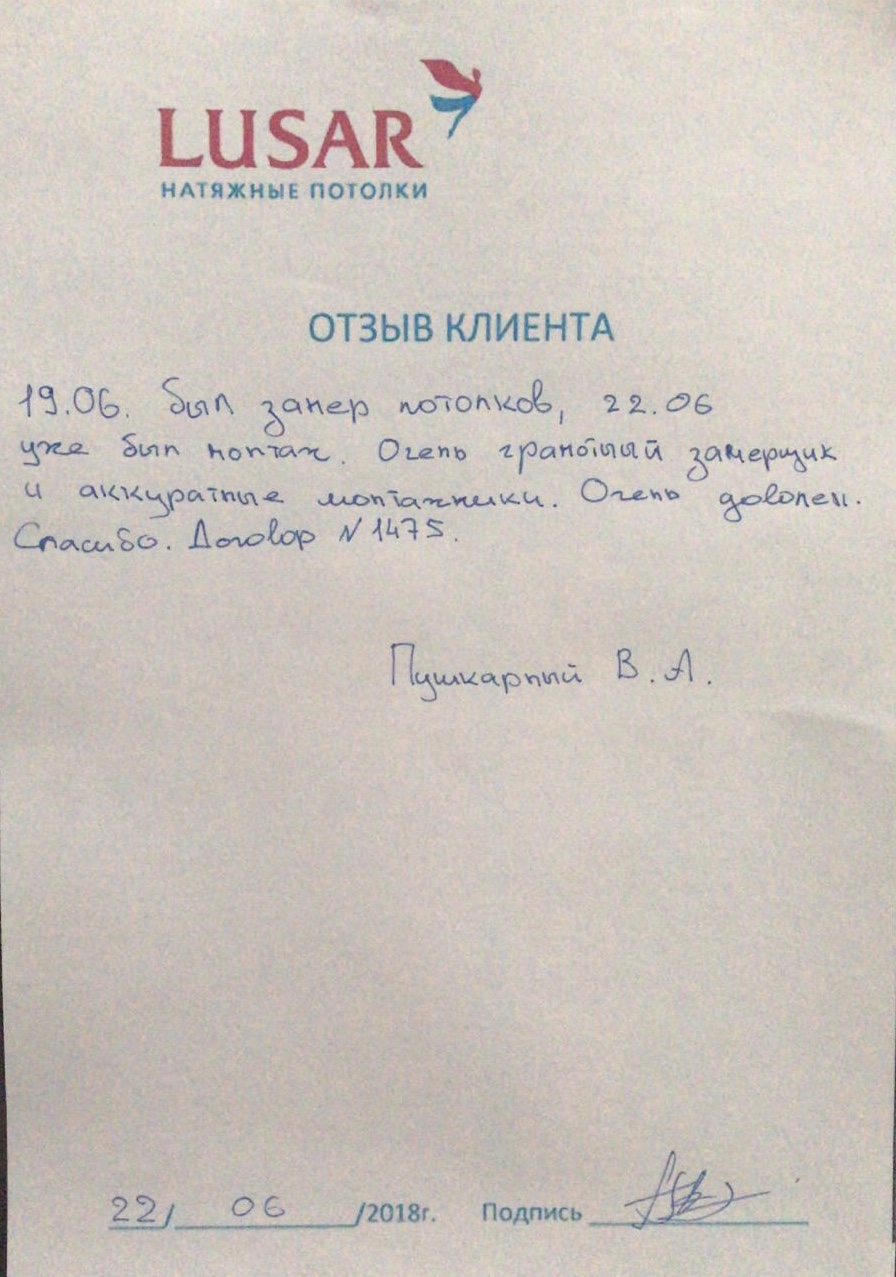 LUSAR
НАТЯЖНЫЕ ПОТОЛКИ
ОТЗЫВ КЛИЕНТА
19.06. был замер потолков, 22.06
уже был монтаж. Очень грамотный замерщик
и аккуратные монтажники. Очень доволен.
Спасибо. Договор N 1475.
Пушкарный В.А.
22/ 06 /2018г. Подпись